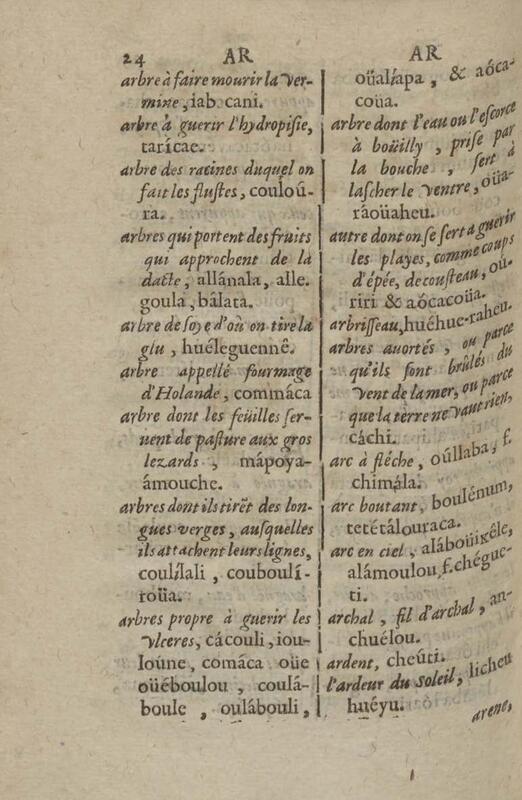 24 AR
arbre à faire mourir la ver-
mine, iab, cani.
arbre à guerir l'hydropisie,
taricae.
arbre des racines duquel on
fait les flustes, couloú-
ra.
arbres qui portent des fruits
qui approchent de la
datte, allánala, alle.
goula, bálata.
arbre de soye d'où on tire la
glu, huéleguennê.
arbre appellé fourmage
d'Holande, commáca
arbre dont les feüilles ser-
uent de pasture aux gros
lezards, mápoya-
ámouche.
arbres dont ils tirẽt des lon-
gues verges, ausquelles
ils attachent leurs lignes,
coulílali, couboulí-
roüa.
arbres propre à guerir les
vlceres, cácouli, iou-
loúne, comáca oüe
oüéboulou, coulá-
boule, oulábouli,
AR
oüalíapa, & aóca-
coüa.
arbre dont l'eau ou l'escorce
à boüilly, prise par
la bouche, sert à
lascher le ventre, oüa-
ráoüaheu.
autre dont on se sert a guerir
les playes, comme coups
d'épée, de cousteau, oü.
riri & aócacoüa.
arbrisseau, huéhue-raheu.
arbres auortés, ou parce
qu'ils sont brûlés du
vent de la mer, ou parce
que la terre ne vaut rien,
cáchi.
arc à fléche, oúllaba, f.
chimála.
arc boutant, boulénum,
tetétálouraca.
arc en ciel, alábouixêle,
alámoulou, f. chégue-
ti.
archal, fil d'archal, an-
chuélou.
ardent, cheúti.
l'ardeur du soleil, licheu
huéyu.
arene,